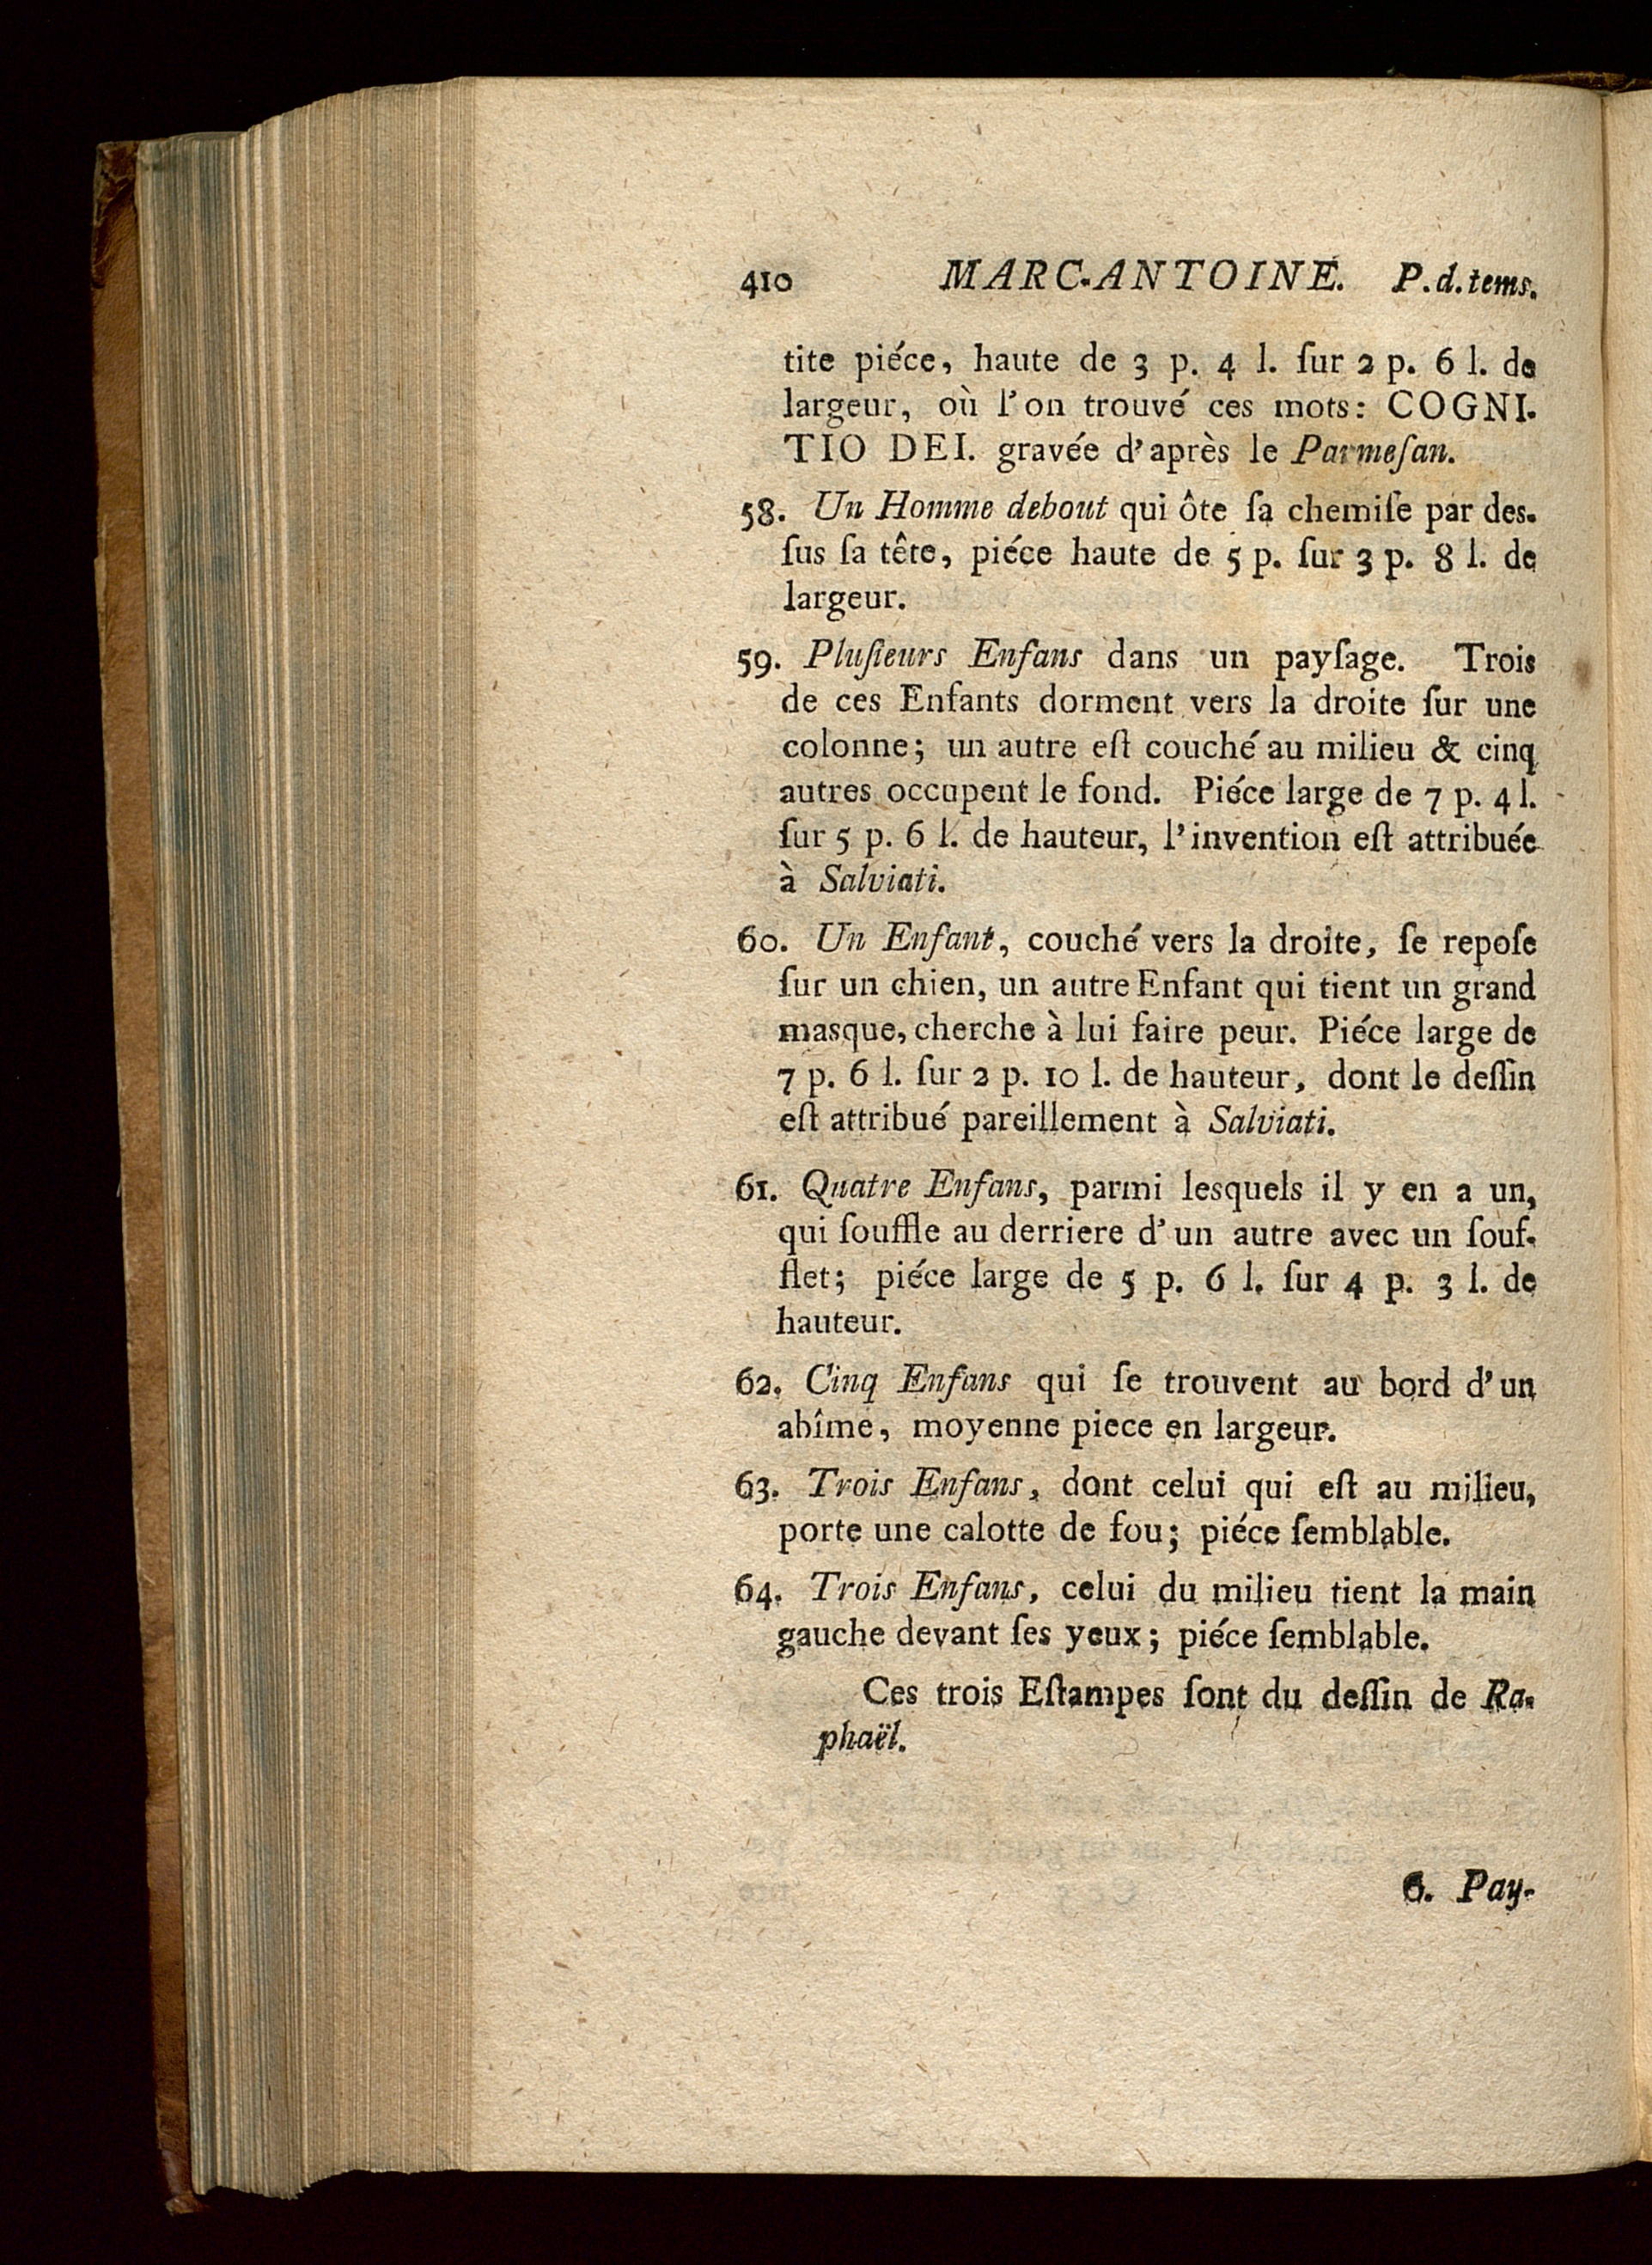 410 MARC-ANTOINE. P.d.tems.
tite piéce, haute de 3 p. 4 l. ſur 2 p. 6 l. de
largeur, où l'on trouvé ces mots: COGNI-
TIO DEI. gravée d'après le Parmeſan.
58. Un Homme debout qui ôte ſa chemiſe par des-
ſus ſa tête, piéce haute de 5 p. ſur 3 p. 8 l. de
largeur.
59. Pluſieurs Enfans dans un payſage. Trois
de ces Enfants dorment vers la droite ſur une
colonne; un autre eſt couché au milieu & cinq
autres occupent le fond. Piéce large de 7 p. 4 l.
ſur 5 p. 6 l. de hauteur, l'invention eſt attribuée
à Salviati.
60. Un Enfant, couché vers la droite, ſe repoſe
ſur un chien, un autre Enfant qui tient un grand
masque, cherche à lui faire peur. Piéce large de
7 p. 6 l. ſur 2 p. 10 l. de hauteur, dont le deſſin
eſt attribué pareillement à Salviati.
61. Quatre Enfans, parmi lesquels il y en a un,
qui ſouffle au derriere d'un autre avec un ſouf-
flet; piéce large de 5 p. 6 l. ſur 4 p. 3 l. de
hauteur.
62. Cinq Enfans qui ſe trouvent au bord d'un
abîme, moyenne piece en largeur.
63. Trois Enfans, dont celui qui eſt au milieu,
porte une calotte de fou; piéce ſemblable.
64. Trois Enfans, celui du milieu tient la main
gauche devant ſes yeux; piéce ſemblable.
Ces trois Eſtampes ſont du deſſin de Ra-
phaël.
6. Pay-